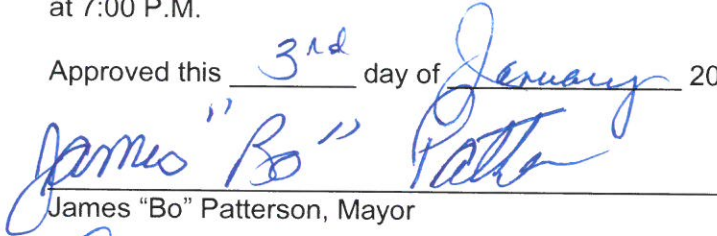 at 7:00 P.M.
Approved this 3rd day of January 20
James "Bo" Patterson
James "Bo" Patterson, Mayor